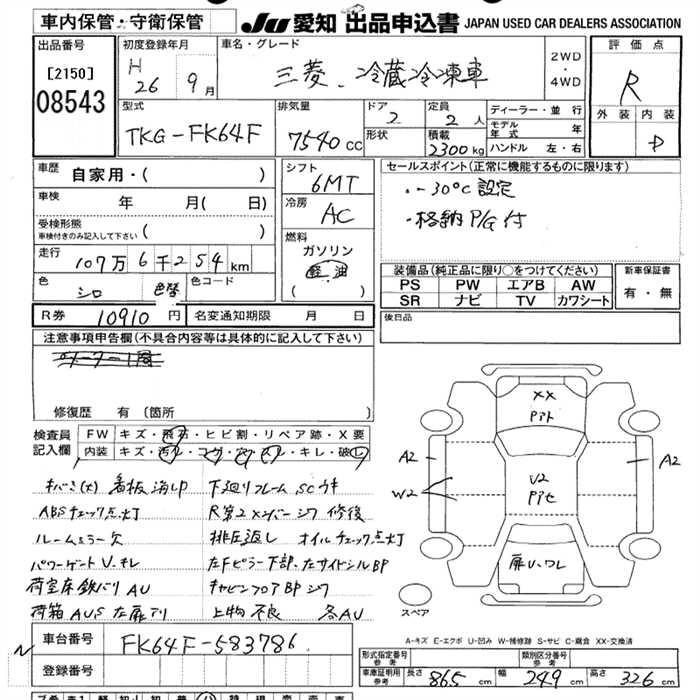 車内保管・守衛保管
JU 愛知 出品申込書 JAPAN USED CAR DEALERS ASSOCIATION
出品番号
[2150]
08543
初度登録年月
H 26 9月
車名・グレード
三菱. 冷蔵冷凍車
2WD・4WD
評価点
R
外装 内装
D
型式
TKG-FK64F
排気量
7540 cc
ドア 2
形状
定員 2 人
積載 2300 kg
ディーラー・並 行
モデル年式 年
ハンドル 左・右
車歴 自家用・( )
車検 年 月( 日)
受検形態
車検付きのみ記入して下さい ( )
走行 107万6千254km
色 シロ 色替
色コード
シフト
6MT
冷房
AC
燃料
ガソリン
軽油
( )
セールスポイント(正常に機能するものに限ります)
・-30℃設定
・格納P/G付
装備品(純正品に限り○をつけてください)
PS PW エアB AW
SR ナビ TV カワシート
新車保証書
有・無
R券 10910 円
名変通知期限 月 日
後日品
注意事項申告欄(不具合内容等は具体的に記入して下さい)
修復歴 有 〔箇所
検査員記入欄
FW キズ・飛石・ヒビ割・リペア跡・X要
内装 キズ・汚レ・コゲ・穴・スレ・キレ・破レ
看板消印 下廻りフレームSCウキ
ABSチェック点灯 R第2Xメンバーシワ修後
ルームミラー欠 排圧返し オイルチェック点灯
パワーゲートU.キレ 左Fピラー下部.左サイドシルBP
荷室床鉄バリAU キャビンフロアBPシワ
荷箱AUS左扉アリ 上物不良 各AU
XX
Pアト
A2
A2
W2
U2
Pセ
扉U.ワレ
スペア
A-キズ E-エクボ U-凹み W-補修跡 S-サビ C-腐食 XX-交換済
車台番号 FK64F-583786
登録番号
型式指定番号 参考
類別区分番号 参考
車庫証明用 参考 長さ 865 cm 幅 249 cm 高さ 326 cm